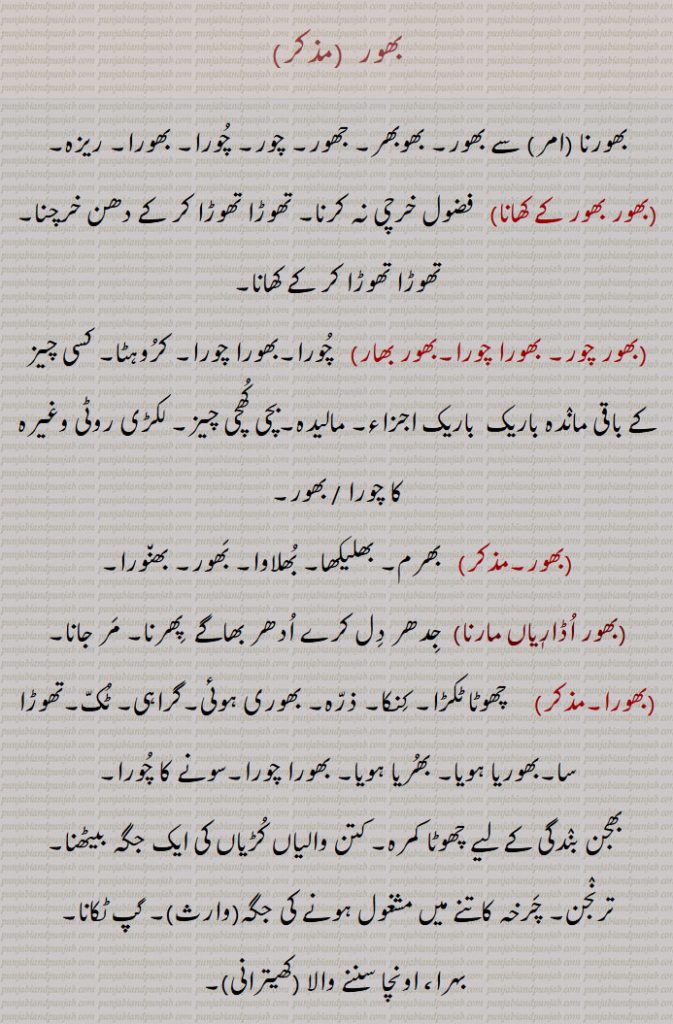 بھور (مذکر)
بھورنا (امر) سے بھور۔ بھوبھر۔ جھور۔ چور۔ چُورا۔ بھورا۔ ریزہ۔
(بھور بھور کے کھانا) فضول خرچی نہ کرنا۔ تھوڑا تھوڑا کر کے دھن خرچنا۔
تھوڑا تھوڑا کر کے کھانا۔
(بھور چور۔ بھورا چورا۔بھور بھار) چُورا۔بھورا چورا۔ کرُوہٹا۔ کسی چیز
کے باقی مانٗدہ باریک باریک اجزاء۔ مالیدہ۔بچی کُھچی چیز۔ لکڑی روٹی وغیرہ
کا چورا / بھور۔
(بھور۔مذکر) بھرم۔ بھلیکھا۔ بُھلاوا۔ بَھور۔ بھنّورا۔
(بھور اُڈاریاں مارنا) جِدھر دِل کرے اُدھر بھاگے پِھرنا۔ مَر جانا۔
(بھورا۔مذکر) چھوٹا ٹکڑا۔ کِنکا۔ ذرّہ۔ بھوری ہوئی۔گراہی۔ ٹُکّ۔تھوڑا
سا۔بھوریا ہویا۔ بھُریا ہویا۔ بھورا چورا۔سونے کا چُورا۔
بھجن بنٗدگی کے لیے چھوٹا کمرہ۔ کتن والیاں کُڑیاں کی ایک جگہ بیٹھنا۔
ترنٗجن۔ چَرخہ کاتنے میں مشغول ہونے کی جگہ(وارث)۔ گپ ٹکانا۔
بہرا، اونچا سننے والا (کھیترانی)۔
punjabiandpunjab.com